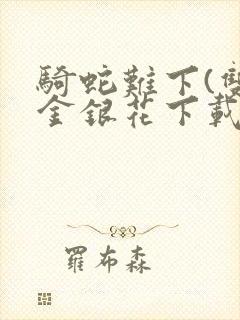 騎蛇難下(雙
金銀花下載
羅布森